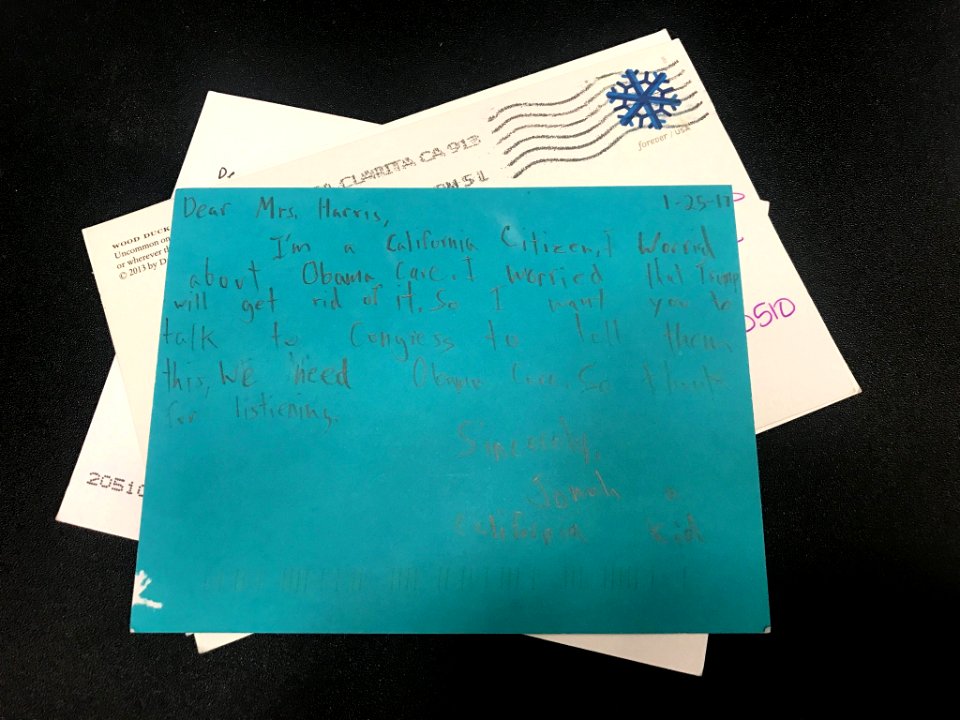 forever / USA
CLARITA CA 913
5 L
D
WOOD DUCK
Uncommon on
or wherever th
© 2013 by D
Dear Mrs. Harris,
1-25-17
I'm a California Citizen, I Worrid
about Obama Care. I worried that Trump
will get rid of it. So I want you to
talk to Congress to tell them
this, We need Obama Care. So thanks
for listiening.
Sincerely,
Jonah a
California Kid
0510
20510